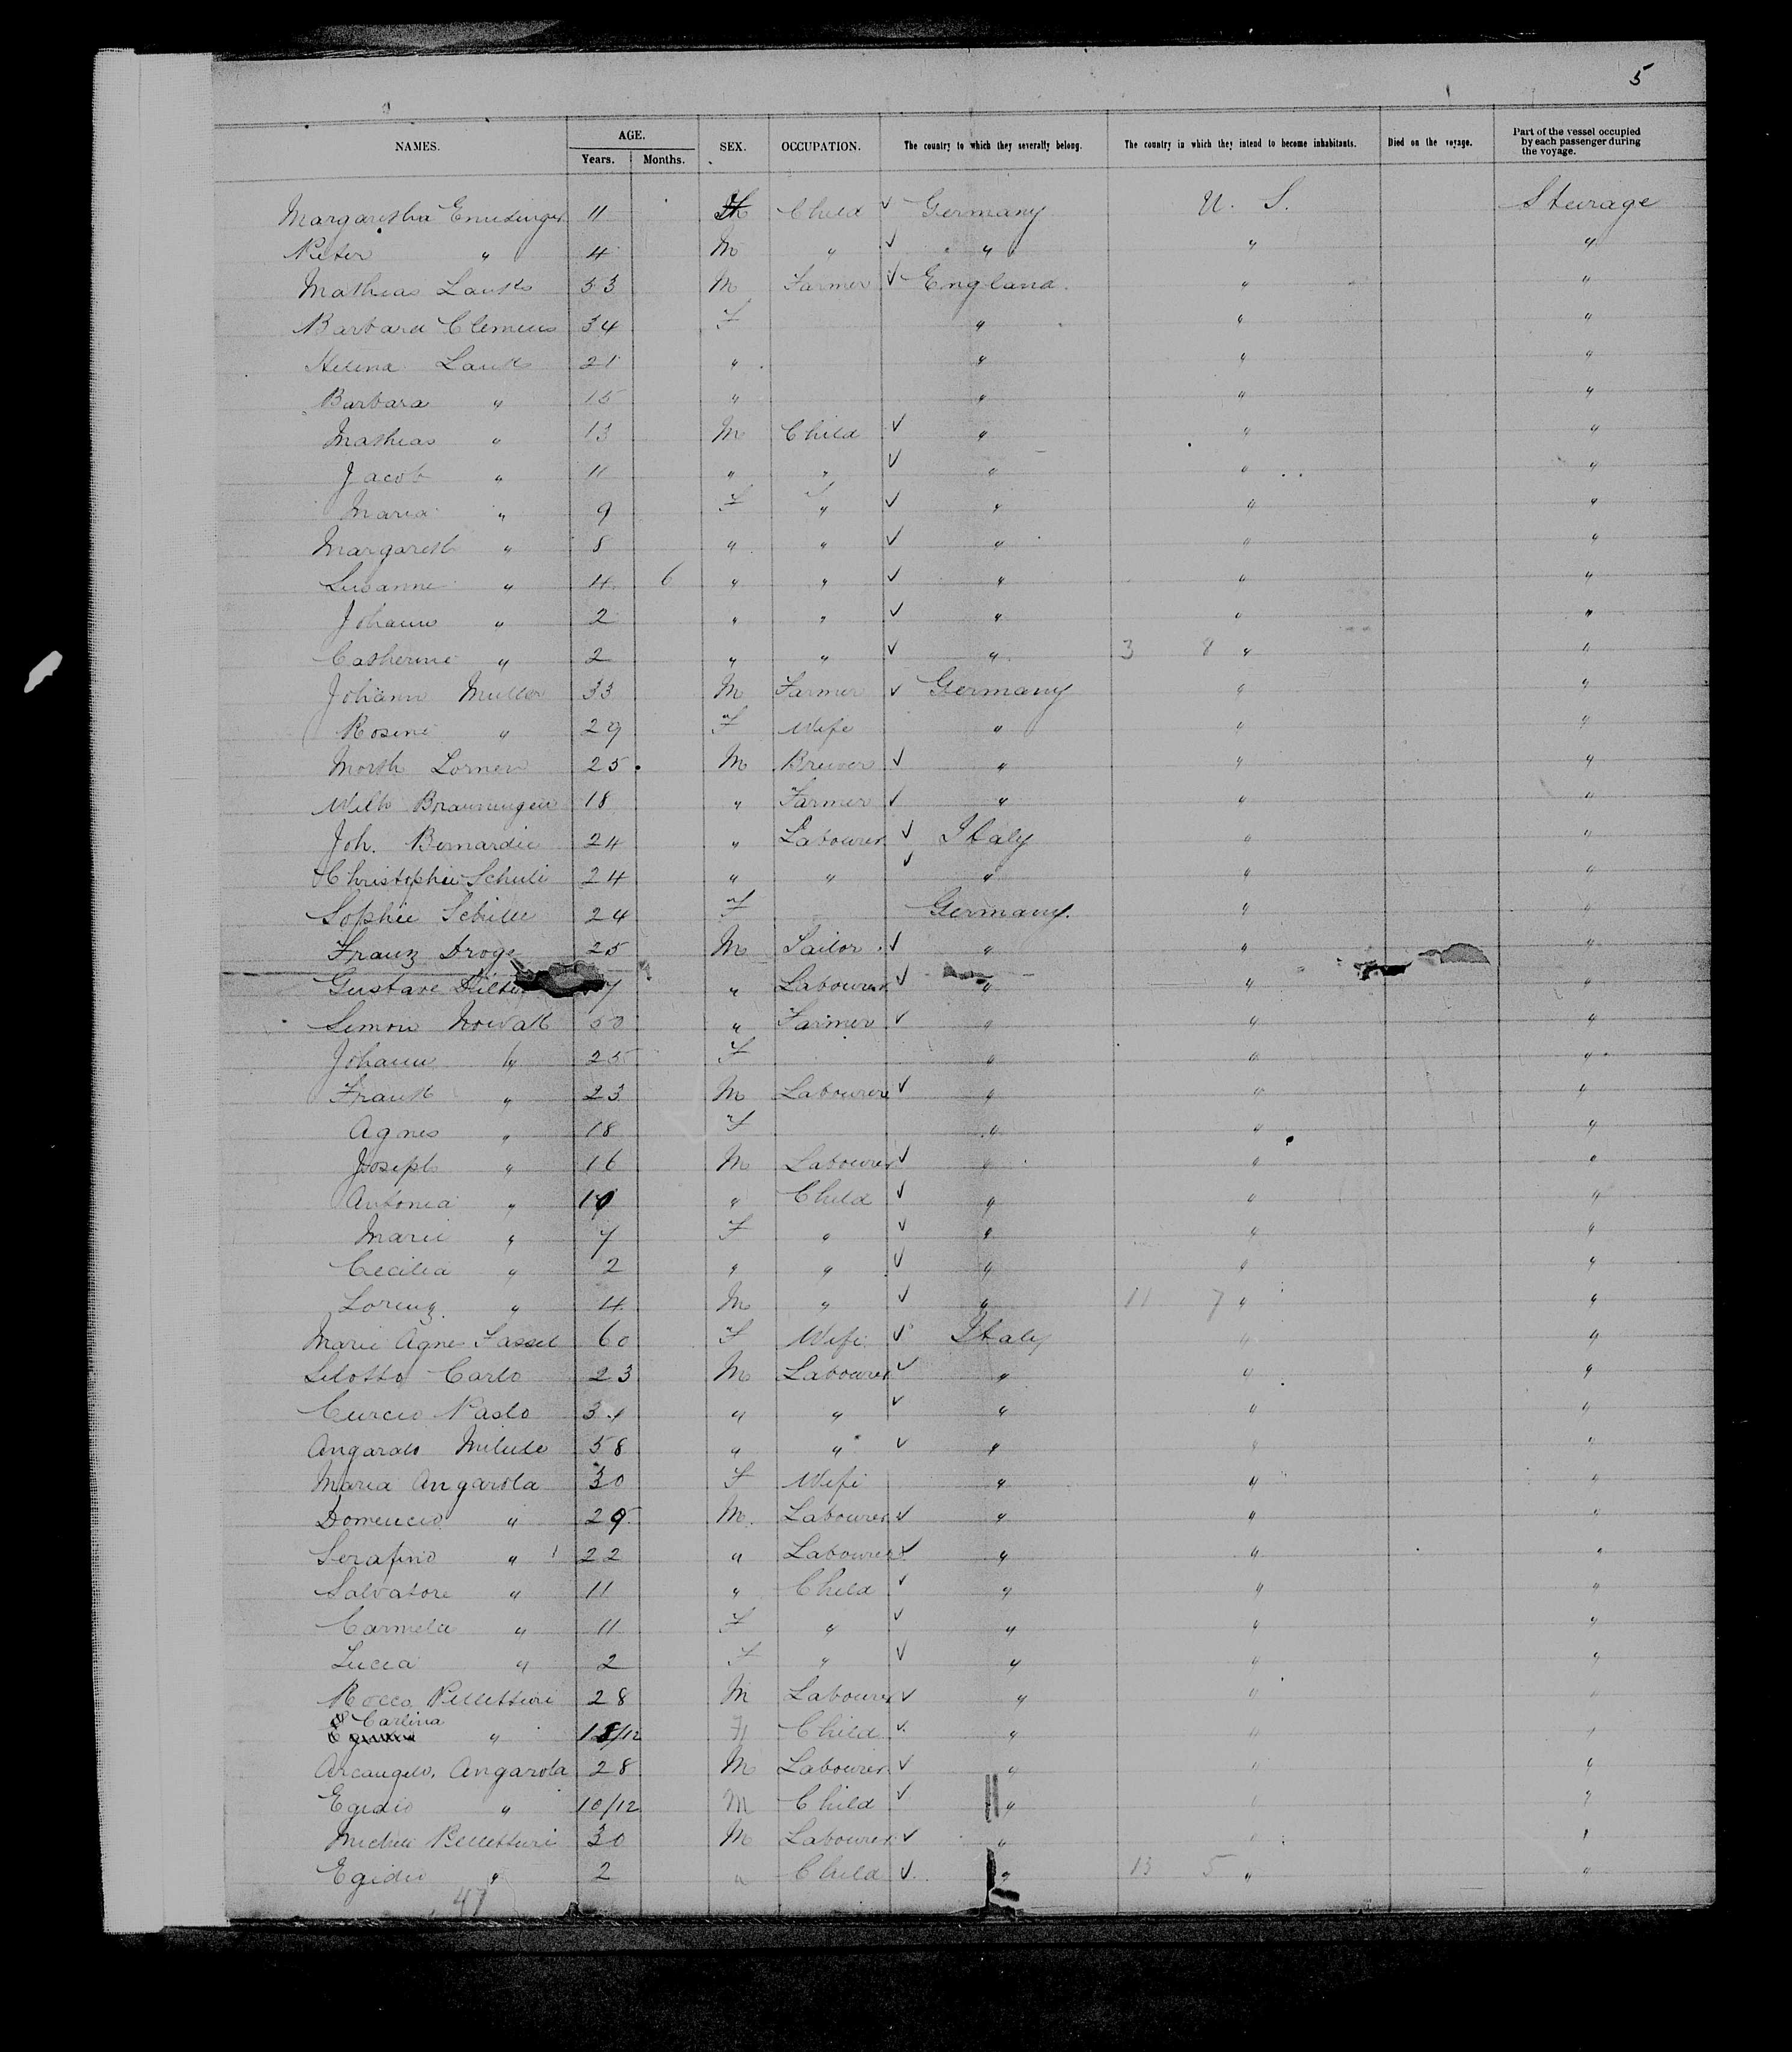 5
NAMES. AGE. Years. Months. SEX. OCCUPATION. The country to which they severally belong. The country in which they intend to become inhabitants. Died on the voyage. Part of the vessel occupied by each passenger during the voyage.
Margaretha 11 Child ✓ Germany U. S. Steerage
Peter " 4 M " ✓ " " "
Mathias 53 M Farmer ✓ England. " "
Barbara Clemens 34 F " " "
Helena 21 " " " "
Barbara " 15 " " " "
Mathias " 13 M Child ✓ " " "
Jacob " 11 " " ✓ " " "
Maria " 9 F " ✓ " " "
Margareth " 8 " " ✓ " " "
Susanne " 4 6 " " ✓ " " "
Johann " 2 " " ✓ " " "
Catherine " 2 " " ✓ " 3 8 " "
Johann Muller 33 M Farmer ✓ Germany " "
Rosine " 29 F Wife " " "
25 M Brewer ✓ " " "
18 " Farmer ✓ " " "
Joh. Bernardie 24 " Labourer ✓ Italy " "
24 " " ✓ " " "
Sophie 24 F Germany. " "
Franz Droge 25 M ✓ " " "
Gustave " Labourer ✓ " " "
Simon Nowak 50 " Farmer ✓ " " "
Johann " 25 F " " "
Frank " 23 M Labourer ✓ " " "
Agnes " 18 F " " "
Joseph " 16 M Labourer ✓ " " "
Antonia " " Child ✓ " " "
Marie " 7 F " ✓ " " "
Cecilia " 2 " " ✓ " " "
Lorenz " 4 M " ✓ " 11 7 " "
Marie Agne Fassel 60 F Wife ✓ Italy " "
Carlo 23 M Labourer ✓ " " "
Curcio Paolo " " ✓ " " "
58 " " ✓ " " "
Maria Angarola 30 F Wife " " "
Domencio " 29 M. Labourer ✓ " " "
Serafino " 22 " Labourer ✓ " " "
Salvatore " 11 " Child ✓ " " "
Carmela " 11 F " ✓ " " "
Lucia " 2 F " ✓ " " "
Rocco Pellettieri 28 M Labourer ✓ " " "
Carlina
" Child ✓ " " "
Arcangelo, Angarola 28 M Labourer ✓ " " "
Egidio " 10/12 M Child ✓ " " "
Michele Pellettieri 30 M Labourer ✓ " " "
Egidio " 2 " Child ✓ " 13 5 " "
47